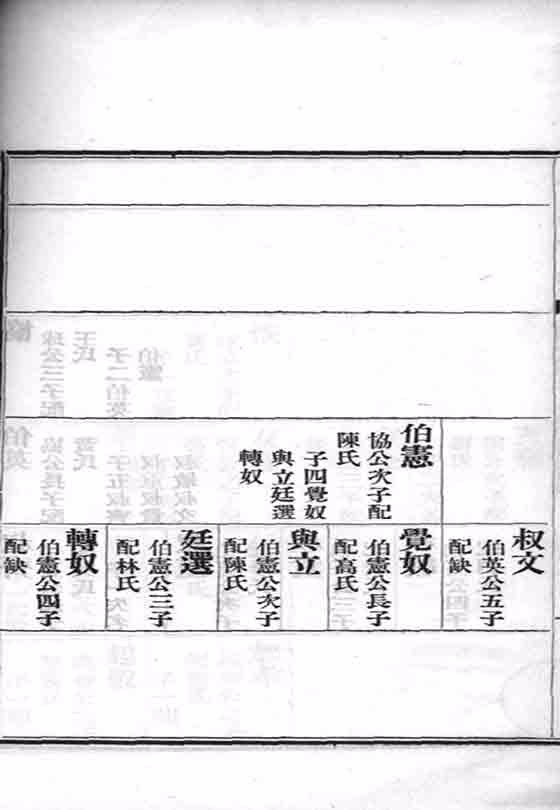 伯憲
協公次子配
陳氏
子四覺奴
與立廷選
轉奴
叔文
伯英公五子
配缺
覺奴
伯憲公長子
配高氏
與立
伯憲公次子
配陳氏
廷選
伯憲公三子
配林氏
轉奴
伯憲公四子
配缺